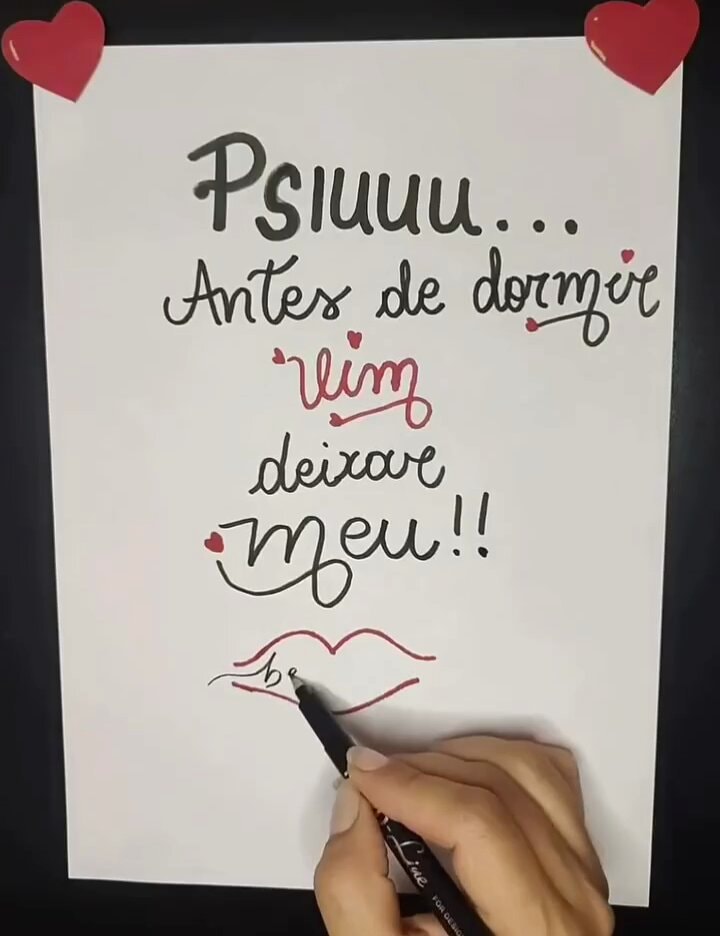 Psiuuu...
Antes de dormir
Vim
deixar
meu!!
be
Line
FOR DESIGN